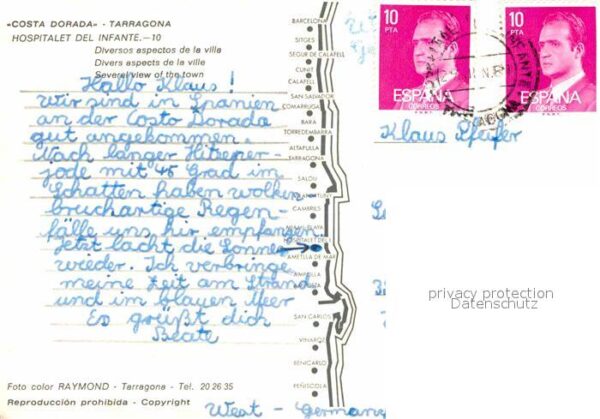 «COSTA DORADA» - TARRAGONA
HOSPITALET DEL INFANTE.—10
Diversos aspectos de la villa
Divers aspects de la ville
Several view of the town
Hallo Klaus!
Wir sind in Spanien
an der Costa Dorada
gut angekommen.
Nach langer Hitzeper-
jode mit 45 Grad im
Schatten haben wolken
bruchartige Regen-
fälle uns hir empfangen
Jetzt lacht die Sonne
wieder. Ich verbringe
meine Zeit am Strand
und im blauen Meer
Es grüßt dich
Beate
Foto color RAYMOND - Tarragona - Tel. 20 26 35
Reproducción prohibida - Copyright
BARCELONA
SITGES
SEGUR DE CALAFELL
CUNIT
CALAFELL
SAN SALVADOR
COMARRUGA
BARA
TORREDEMBARRA
ALTAFULLA
TARRAGONA
SALOU
CAMBRILS
HOSPITALET DEL I
AMETLLA DE MAR
AMPOLLA
SAN CARLOS
VINAROZ
BENICARLO
PEÑISCOLA
10
PTA
ESPAÑA
CORREOS
10
PTA
ESPAÑA
CORREOS
Klaus Pfeifer
West - Germany
privacy protection
Datenschutz